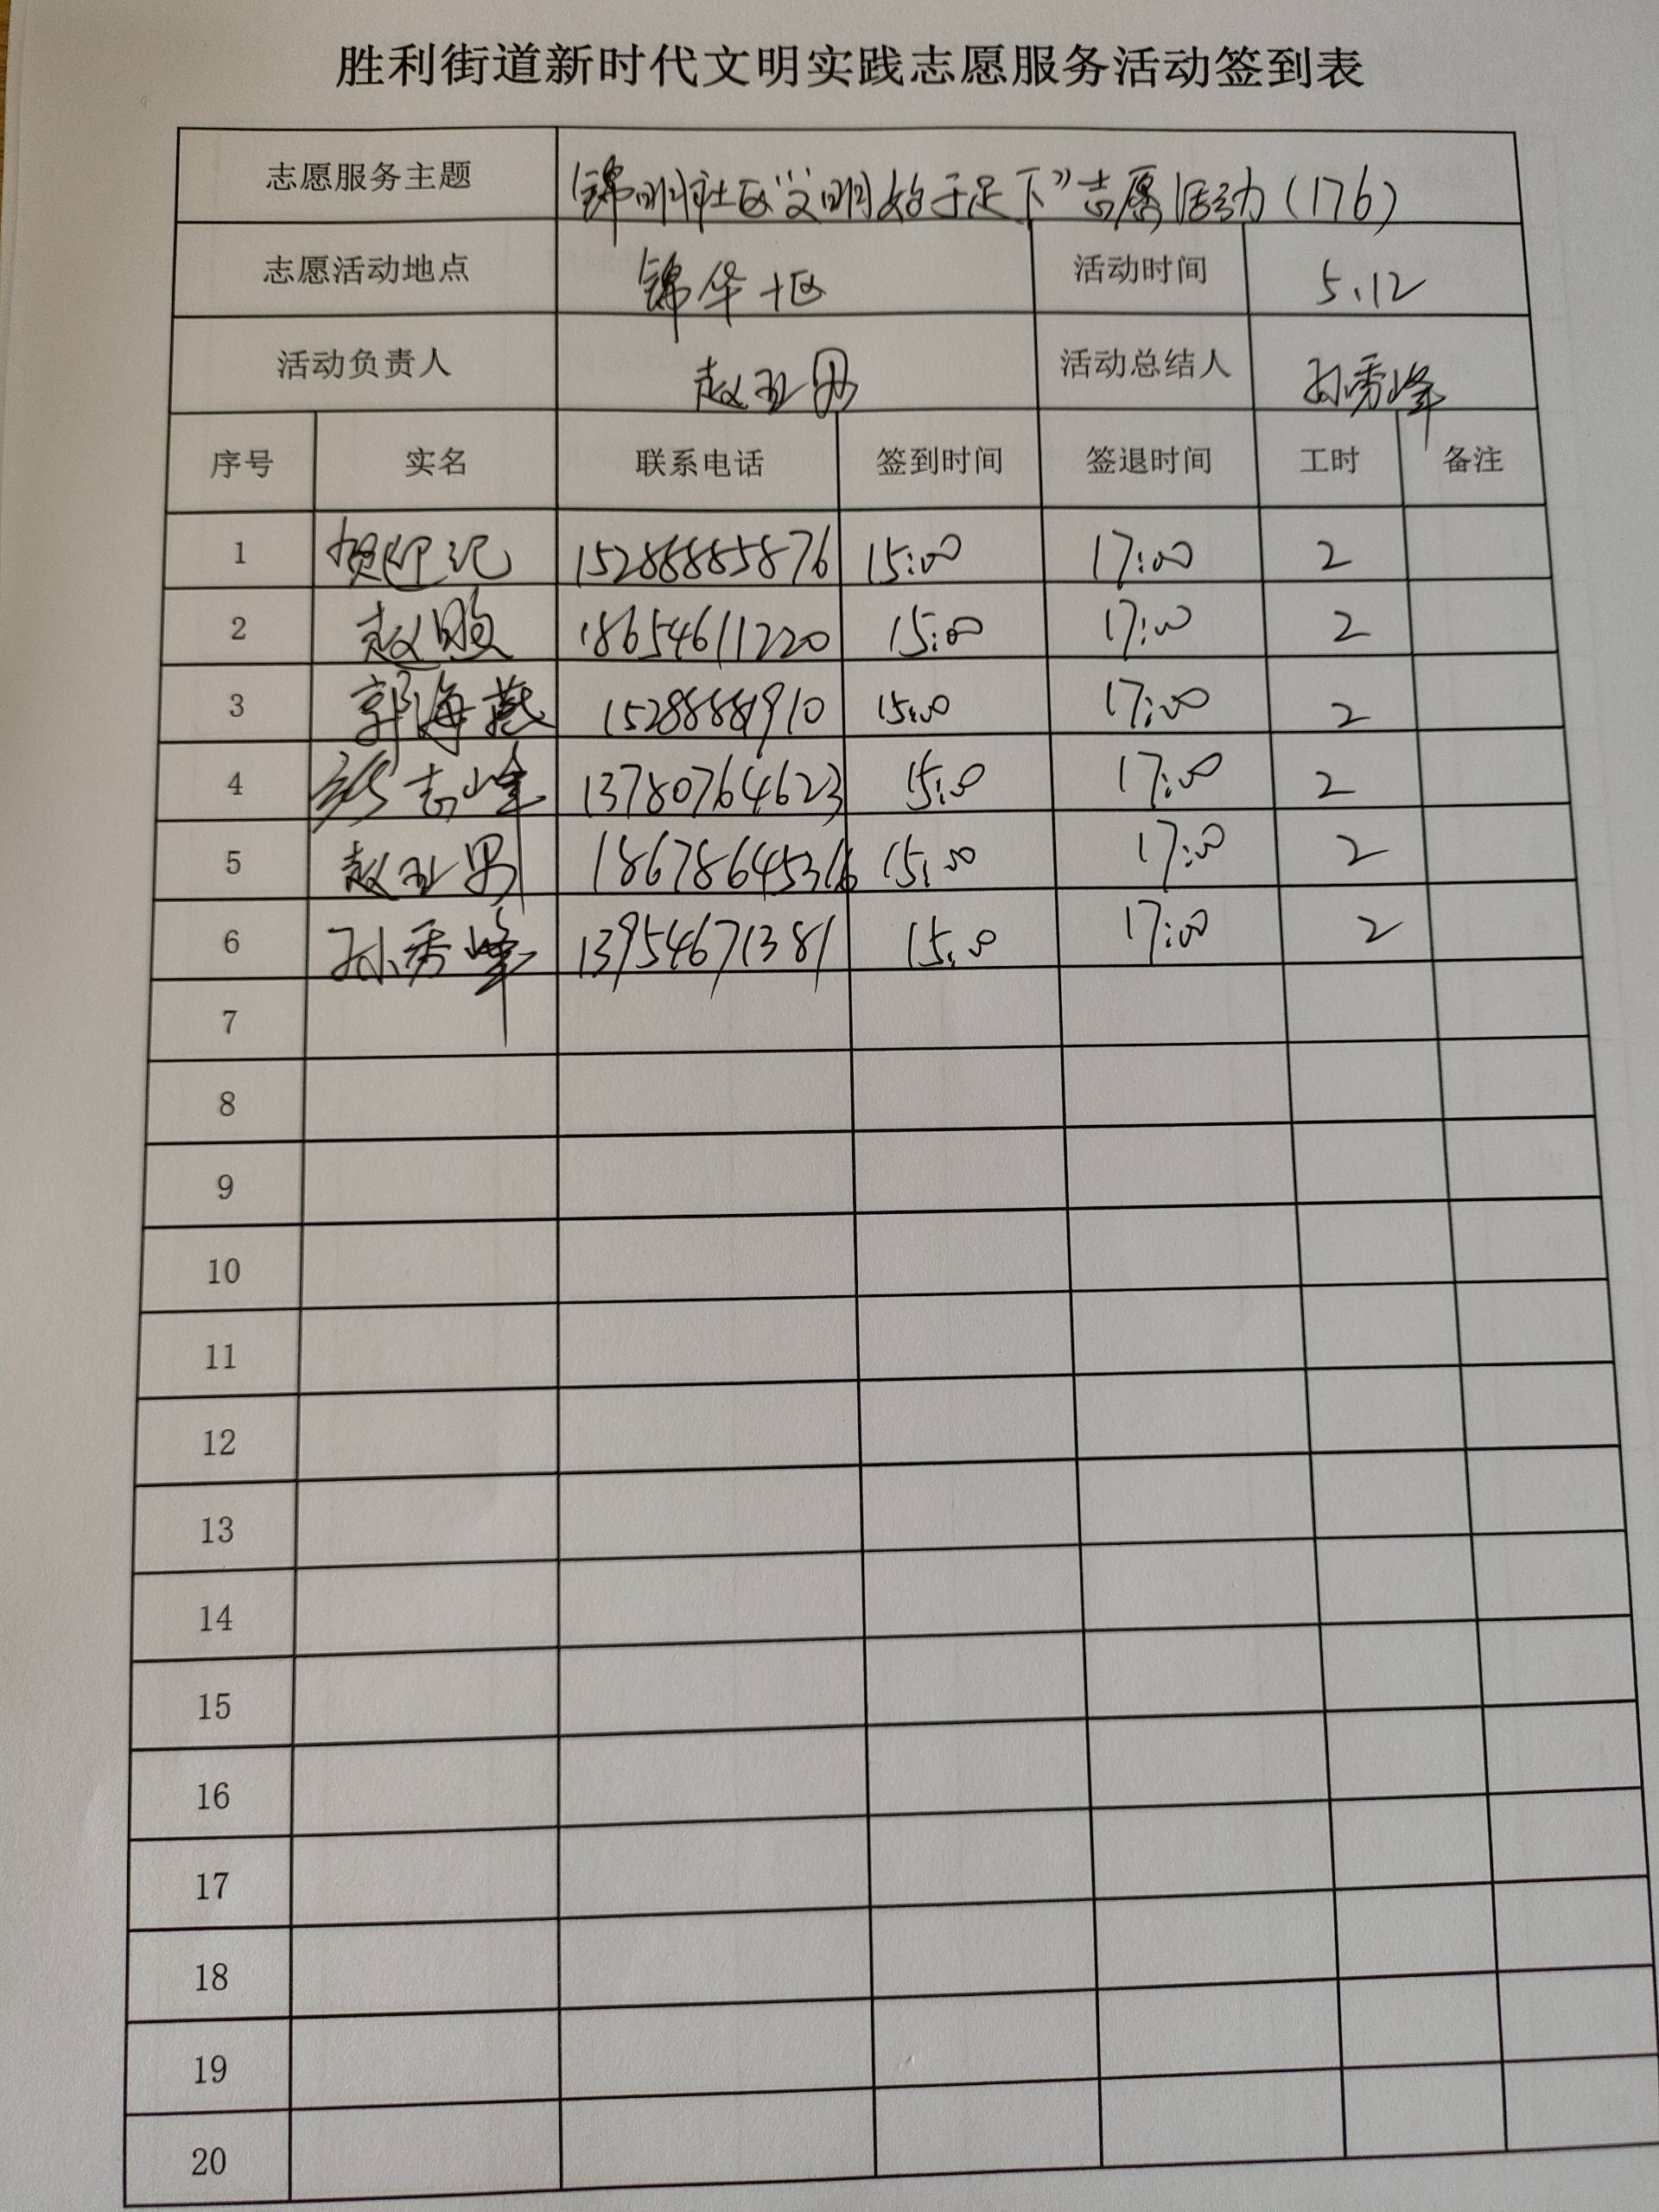 胜利街道新时代文明实践志愿服务活动签到表
志愿服务主题 锦明社区“文明始于足下”志愿活动(176)
志愿活动地点 锦华十区 活动时间 5.12
活动负责人 赵亚男 活动总结人 孙秀峰
序号 实名 联系电话 签到时间 签退时间 工时 备注
1 15288885876 15:00 17:00 2
2 18654611220 15:00 17:00 2
3 郭海燕 15288881910 15:00 17:00 2
4 志峰 13780764623 15:00 17:00 2
5 赵亚男 15:00 17:00 2
6 孙秀峰 13954671381 15:00 17:00 2
7
8
9
10
11
12
13
14
15
16
17
18
19
20